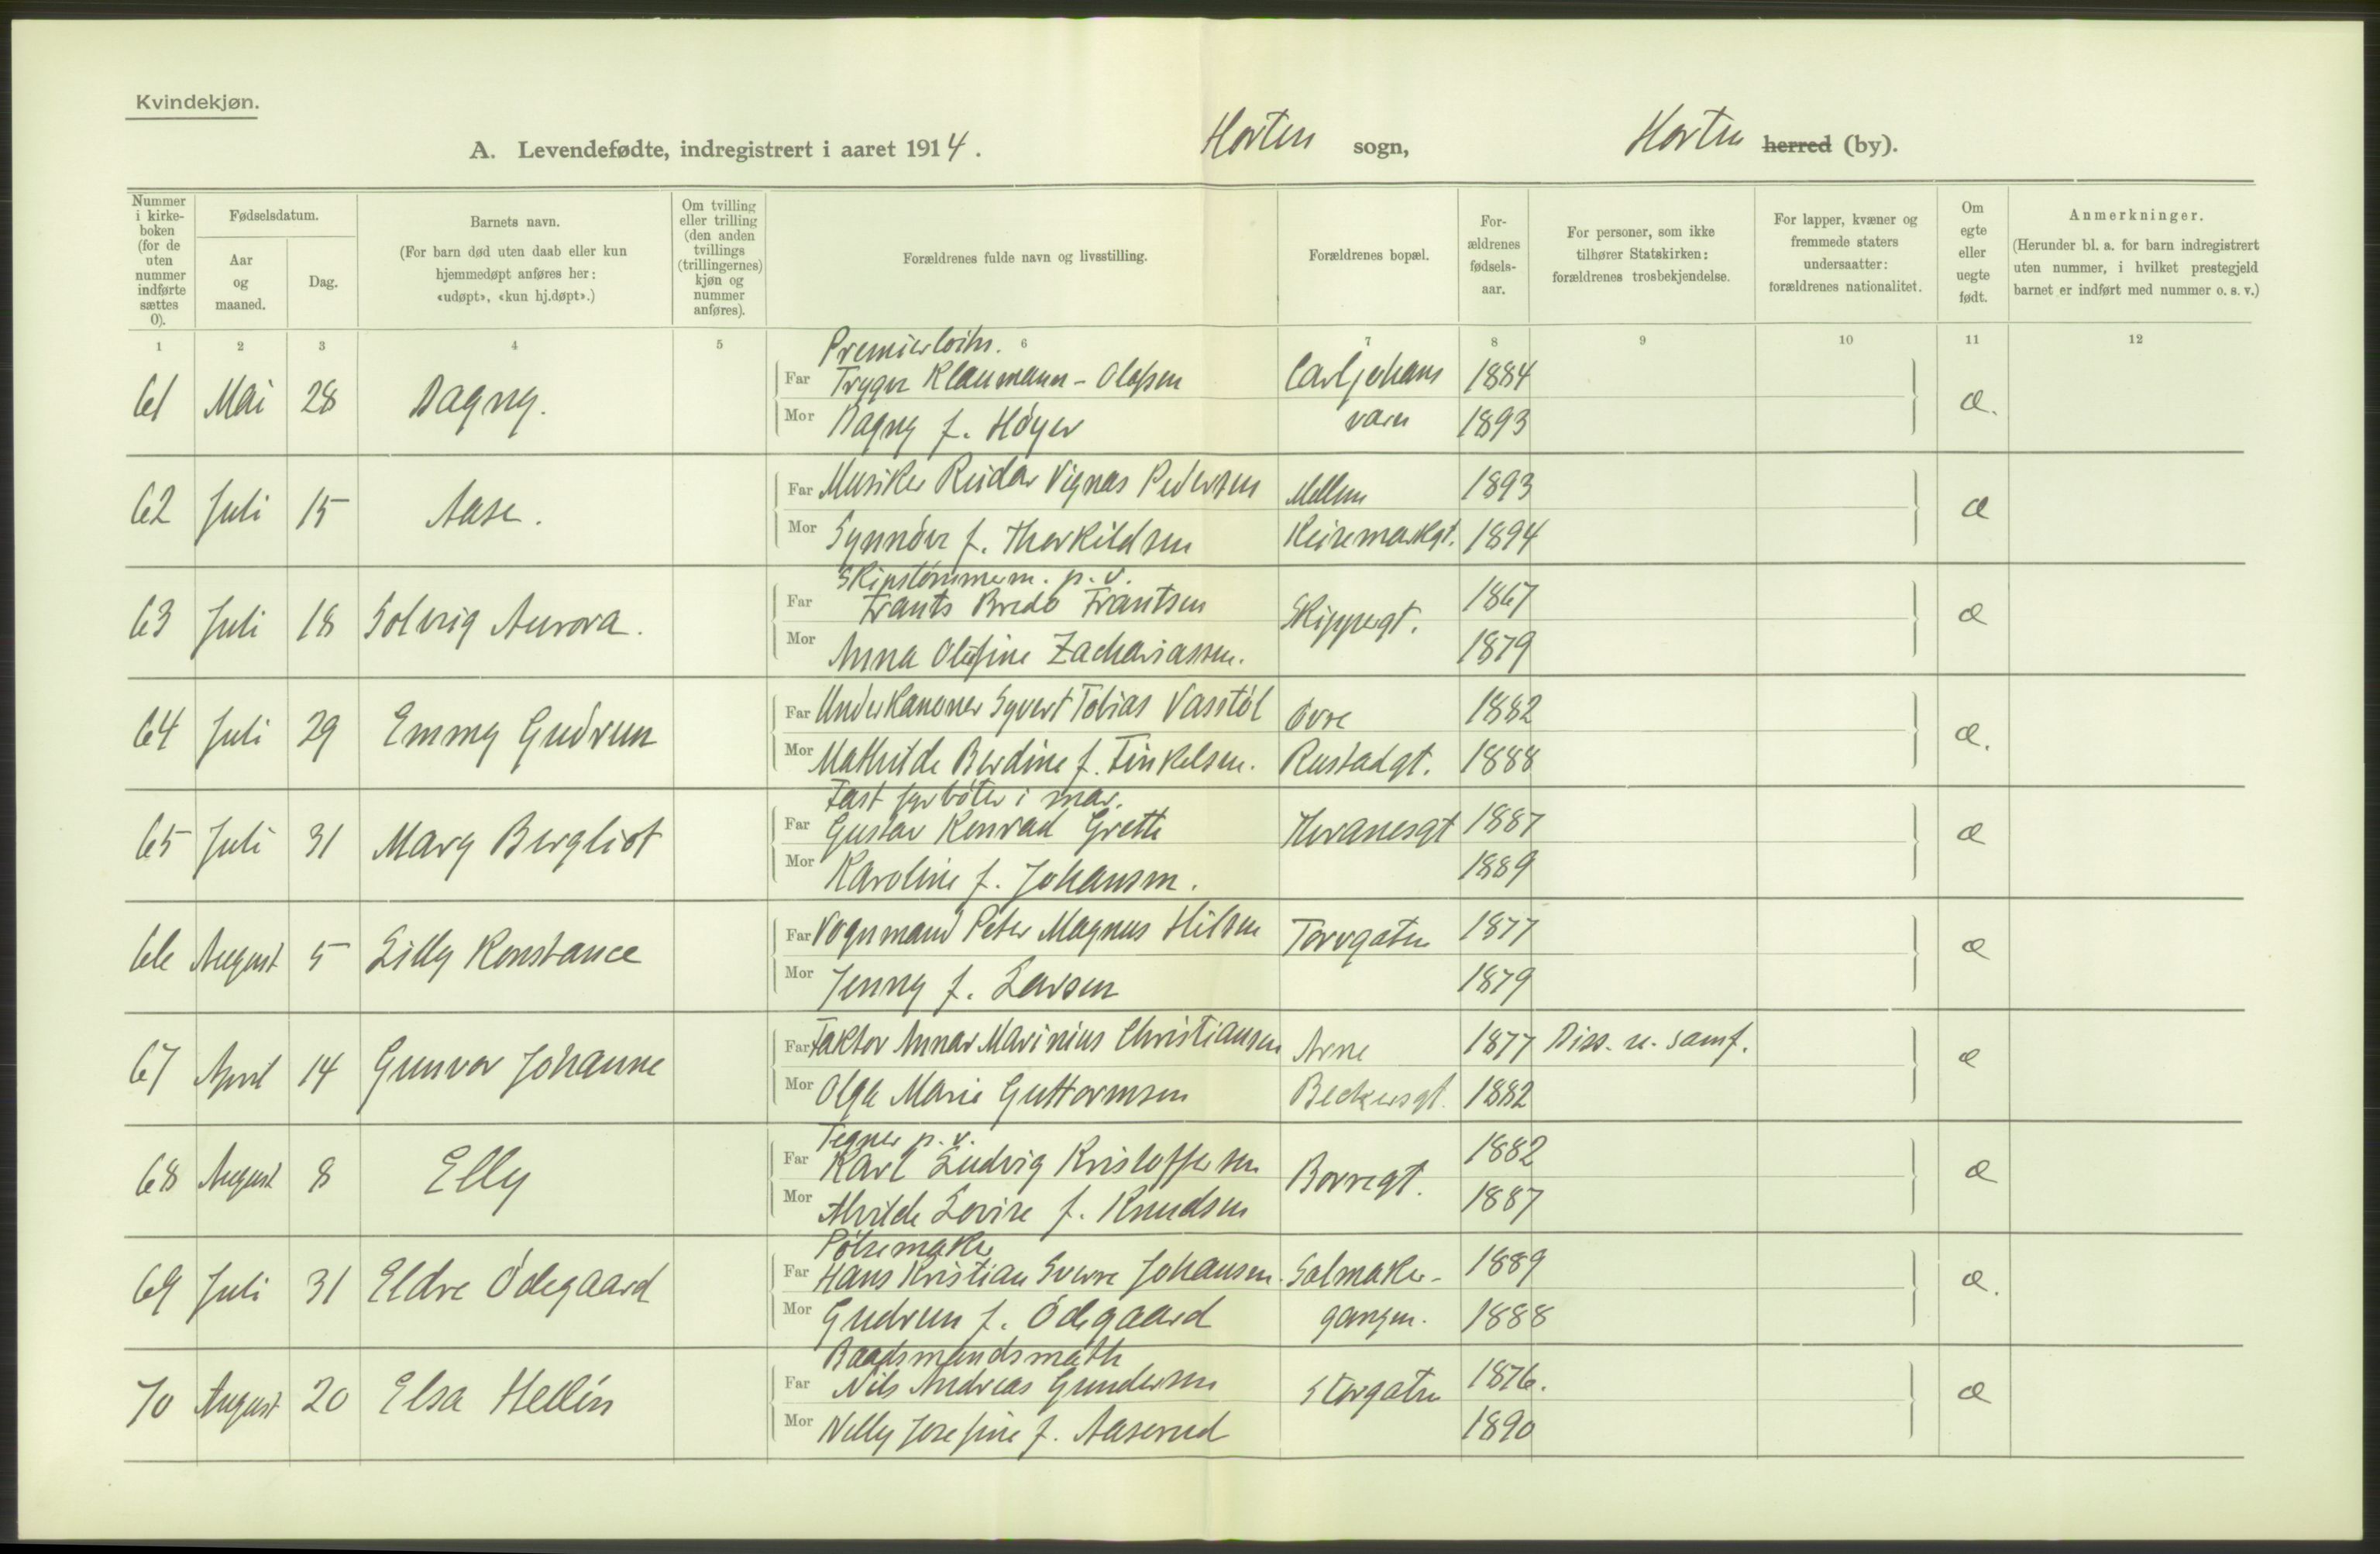 Kvindekjøn.
A. Levendefødte, indregistrert i aaret 1914. Horten sogn, Horten herred (by).
Nummer i kirke- boken (for de uten nummer indførte sættes 0).
Fødselsdatum.
Aar og maaned.
Dag.
Barnets navn.
(For barn død uten daab eller kun hjemmedøpt anføres her: «udøpt», «kun hj.døpt».)
Om tvilling eller trilling (den anden tvillings (trillingernes) kjøn og nummer anføres).
Forældrenes fulde navn og livsstilling.
Forældrenes bopæl.
For- ældrenes fødsels- aar.
For personer, som ikke tilhører Statskirken: forældrenes trosbekjendelse.
For lapper, kvæner og fremmede staters undersaatter: forældrenes nationalitet.
Om egte eller uegte født.
Anmerkninger.
(Herunder bl. a. for barn indregistrert uten nummer, i hvilket prestegjeld barnet er indført med nummer o. s. v.)
1 2 3 4 5 6 7 8 9 10 11 12
Premierløitn.
61 Mai 28 Dagny. Far Trygve Klaumann-Olsen Carljohans 1884 æ.
Mor Dagny f. Høyer værn 1893
62 Juli 15 Aase. Far Musiker Reidar Vignas Pedersen Mellem 1893 æ
Mor Synnöve f. Therkildsen Keisemarkgt. 1894
Skipstømmerm. p. v.
63 Juli 18 Solveig Aurora. Far Frants Bredo Frantsen Skippergt. 1867 æ
Mor Anna Olefine Zachariassen. 1879
64 Juli 29 Emmy Gudrun Far Underkanoner Syvert Tobias Vasstöl Övre 1882 æ.
Mor Mathilde Berdine f. Finkelsen. Rustadgt. 1888
Fast fyrböter i mar.
65 Juli 31 Mary Bergliot Far Gustav Konrad Grette Thranesgt 1887 æ
Mor Karoline f. Johansen. 1889
66 August 5 Lilly Konstance Far Vognmand Peter Magnus Hilsen Torvgaten 1877 æ
Mor Jenny f. Larsen 1879
67 April 14 Gunvor Johanne Far Faktor Annar Marinius Christiansen Arne 1877 Diss. u. samf. æ
Mor Olga Marie Guttormsen Beckersgt. 1882
Tegner p. v.
68 August 8 Elly Far Karl Ludvig Kristoffersen Borregt. 1882 æ
Mor Alvilde Lovise f. Knudsen 1887
Pölsemaker
69 Juli 31 Eldre Ödegaard Far Hans Kristian Sverre Johansen. Salmaker- 1889 æ.
Mor Gudrun f. Ödegaard gangen. 1888
Baadsmandsmath
70 August 20 Elsa Hellin Far Nils Andreas Gundersen Storgaten 1876. æ
Mor Nelly Josefine f. Aaserud 1890